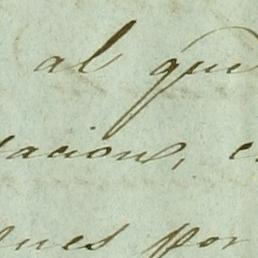 al que
acion, e
ues por